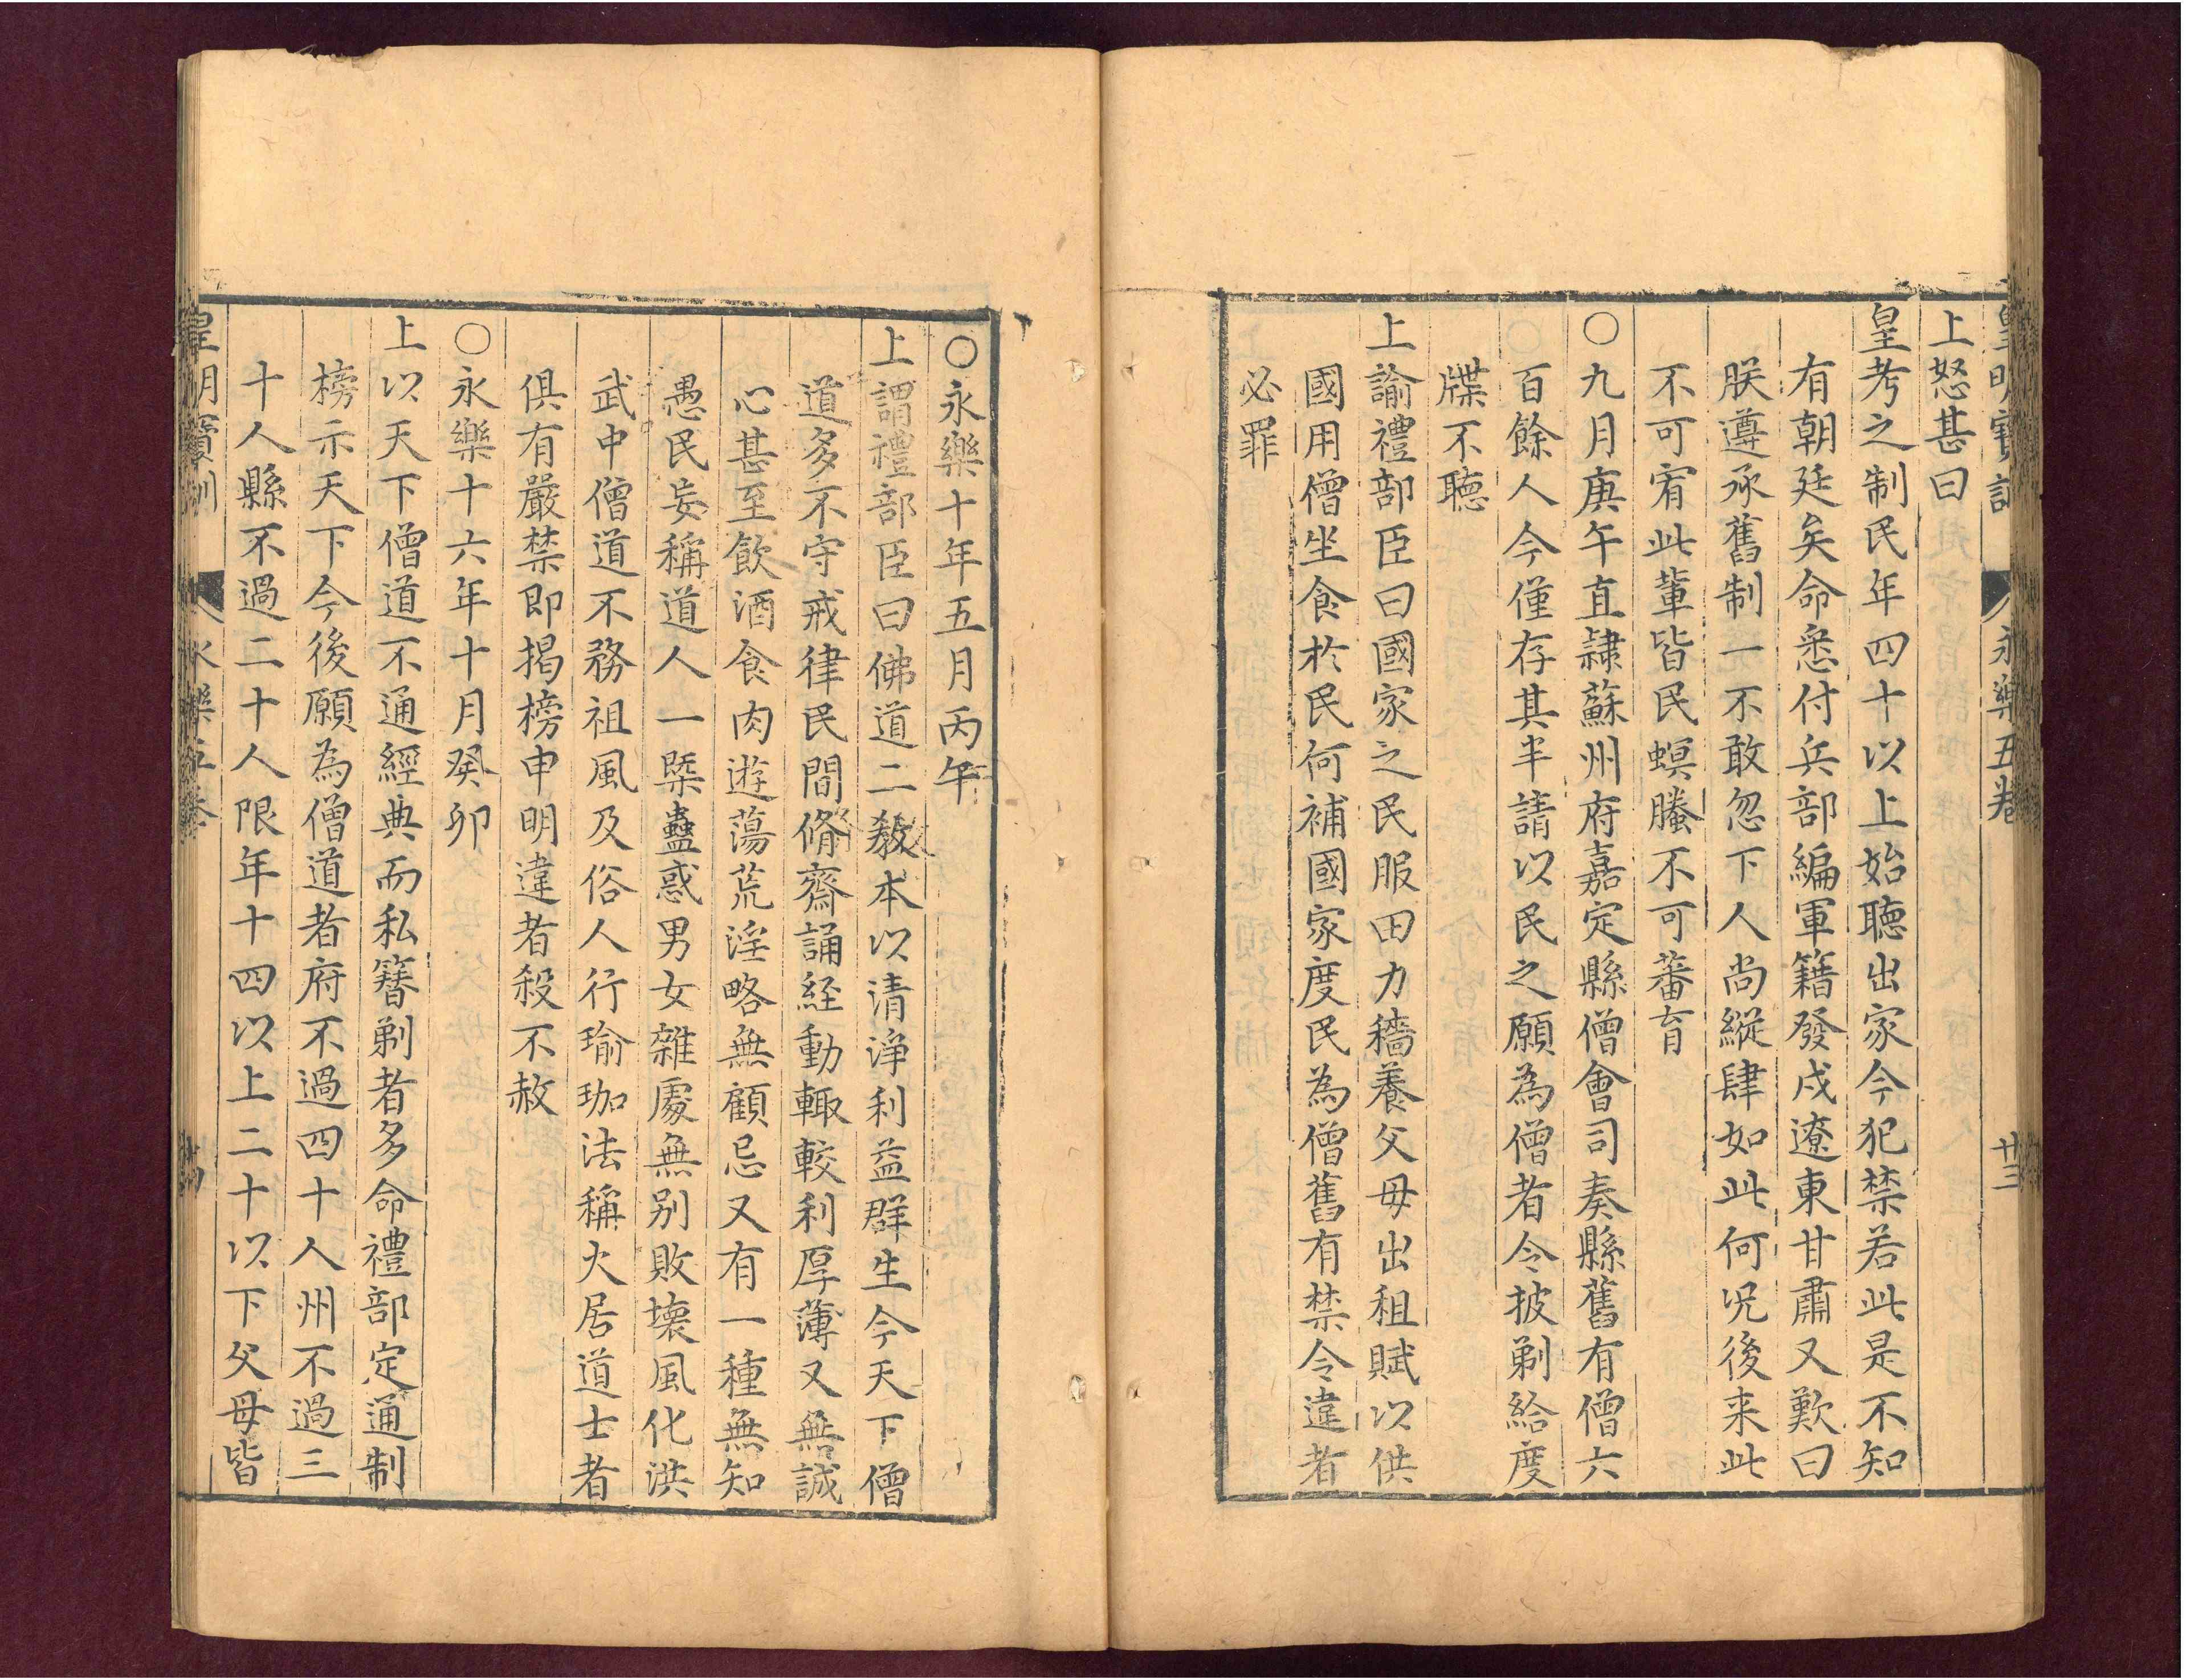 皇明寶訓 永樂五卷 廿三
上怒甚曰
皇考之制民年四十以上始聽出家今犯禁若此是不知
有朝廷矣命悉付兵部編軍籍發戍遼東甘肅又歎曰
朕遵承舊制一不敢忽下人尚縱肆如此何况後来此
不可宥此輩皆民螟螣不可蕃育
○九月庚午直隸蘇州府嘉定縣僧會司奏縣舊有僧六
百餘人今僅存其半請以民之願為僧者令披剃給度
牒不聽
上諭禮部臣曰國家之民服田力穡養父母出租賦以供
國用僧坐食於民何補國家度民為僧舊有禁令違者
必罪
○永樂十年五月丙午
上謂禮部臣曰佛道二教本以清淨利益群生今天下僧
道多不守戒律民間脩齋誦經動輙較利厚薄又無誠
心甚至飲酒食肉遊蕩荒淫略無顧忌又有一種無知
愚民妄稱道人一槩蠱惑男女雜處無别敗壞風化洪
武中僧道不務祖風及俗人行瑜珈法稱火居道士者
俱有嚴禁即揭榜申明違者殺不赦
○永樂十六年十月癸卯
上以天下僧道不通經典而私簪剃者多命禮部定通制
榜示天下今後願為僧道者府不過四十人州不過三
十人縣不過二十人限年十四以上二十以下父母皆
皇明寶訓 永樂五卷